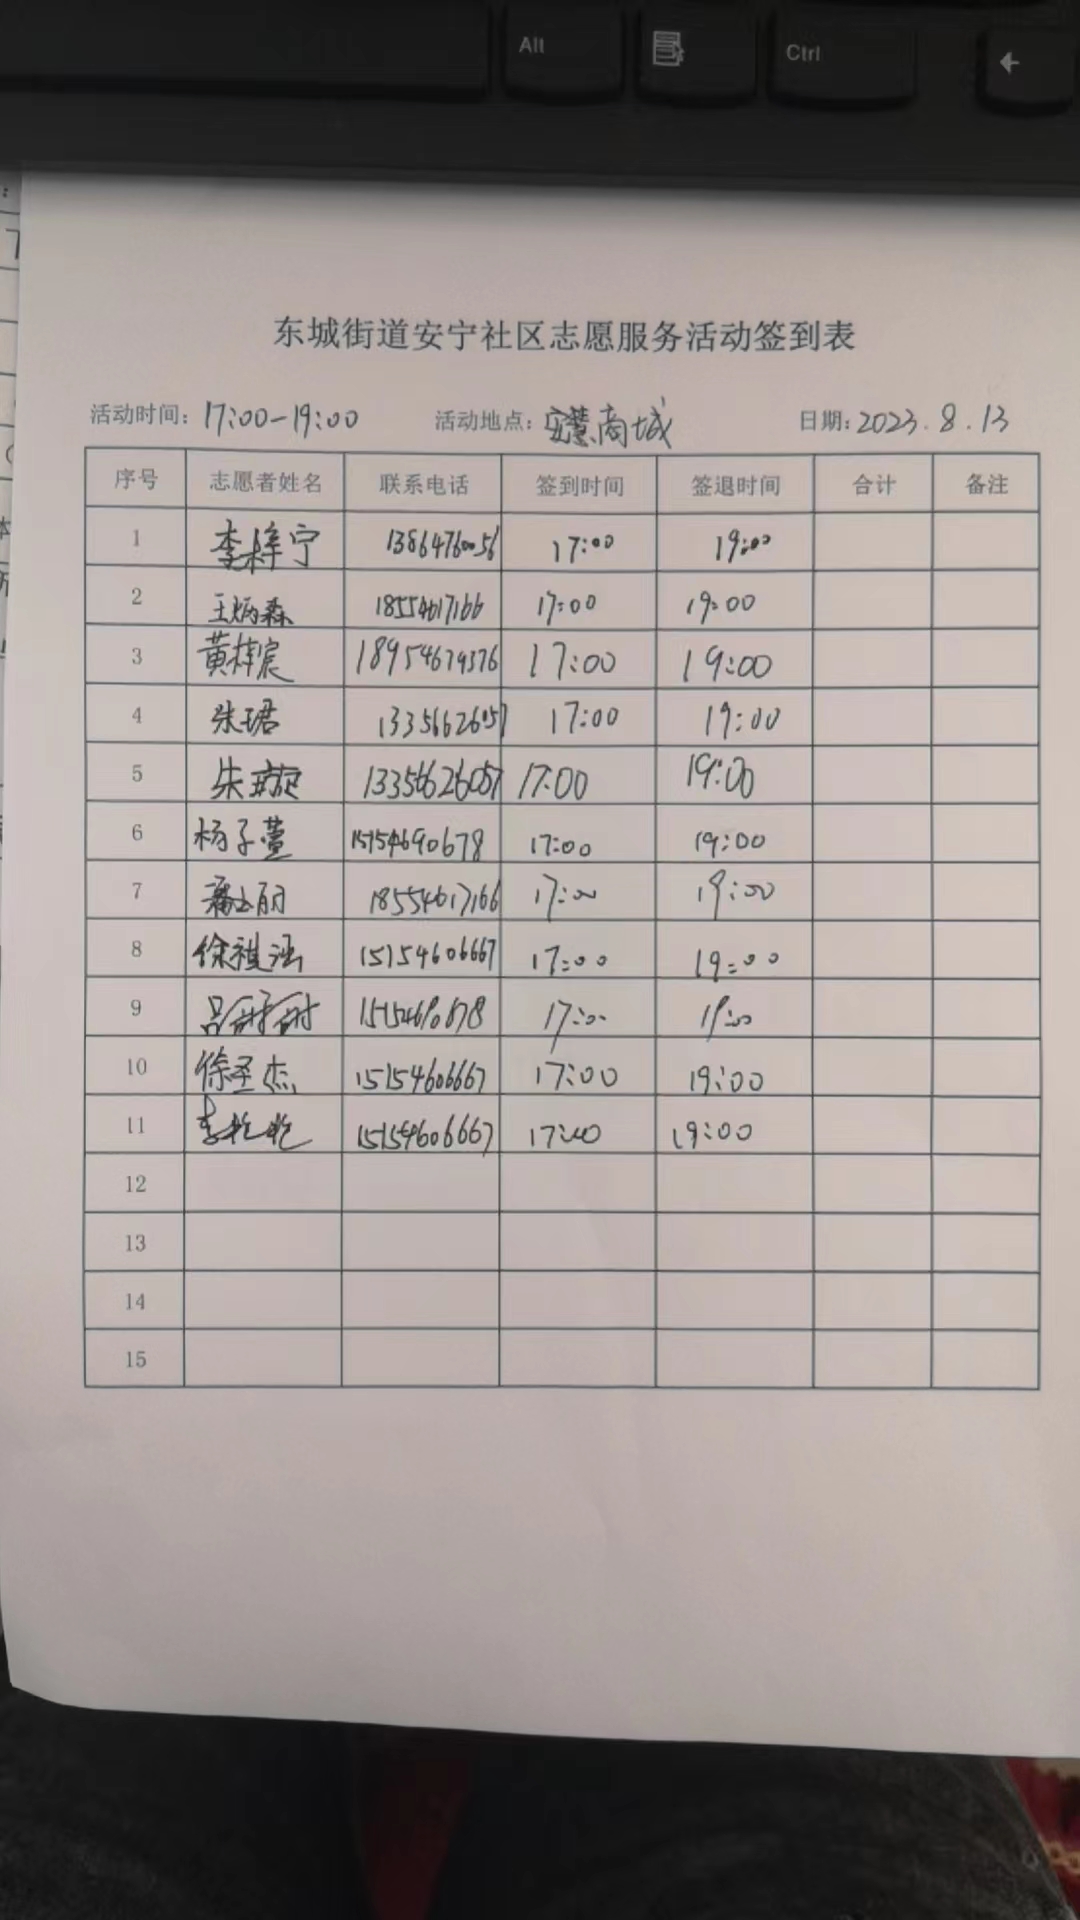 Alt Ctrl
东城街道安宁社区志愿服务活动签到表
活动时间: 17:00-19:00 活动地点: 安慧商城 日期: 2023.8.13
序号 志愿者姓名 联系电话 签到时间 签退时间 合计 备注
1 李梓宁 13864760056 17:00 19:00
2 王炳森 18554617166 17:00 19:00
3 黄梓宸 18954679376 17:00 19:00
4 朱珺 13356626057 17:00 19:00
5 朱璇 13356626057 17:00 19:00
6 杨子萱 15154690678 17:00 19:00
7 18554617166 17:00 19:00
8 徐祺涵 15154606667 17:00 19:00
9 吕甜甜 15154690678 17:00 19:00
10 徐圣杰 15154606667 17:00 19:00
11 李艳艳 15154606667 17:00 19:00
12
13
14
15